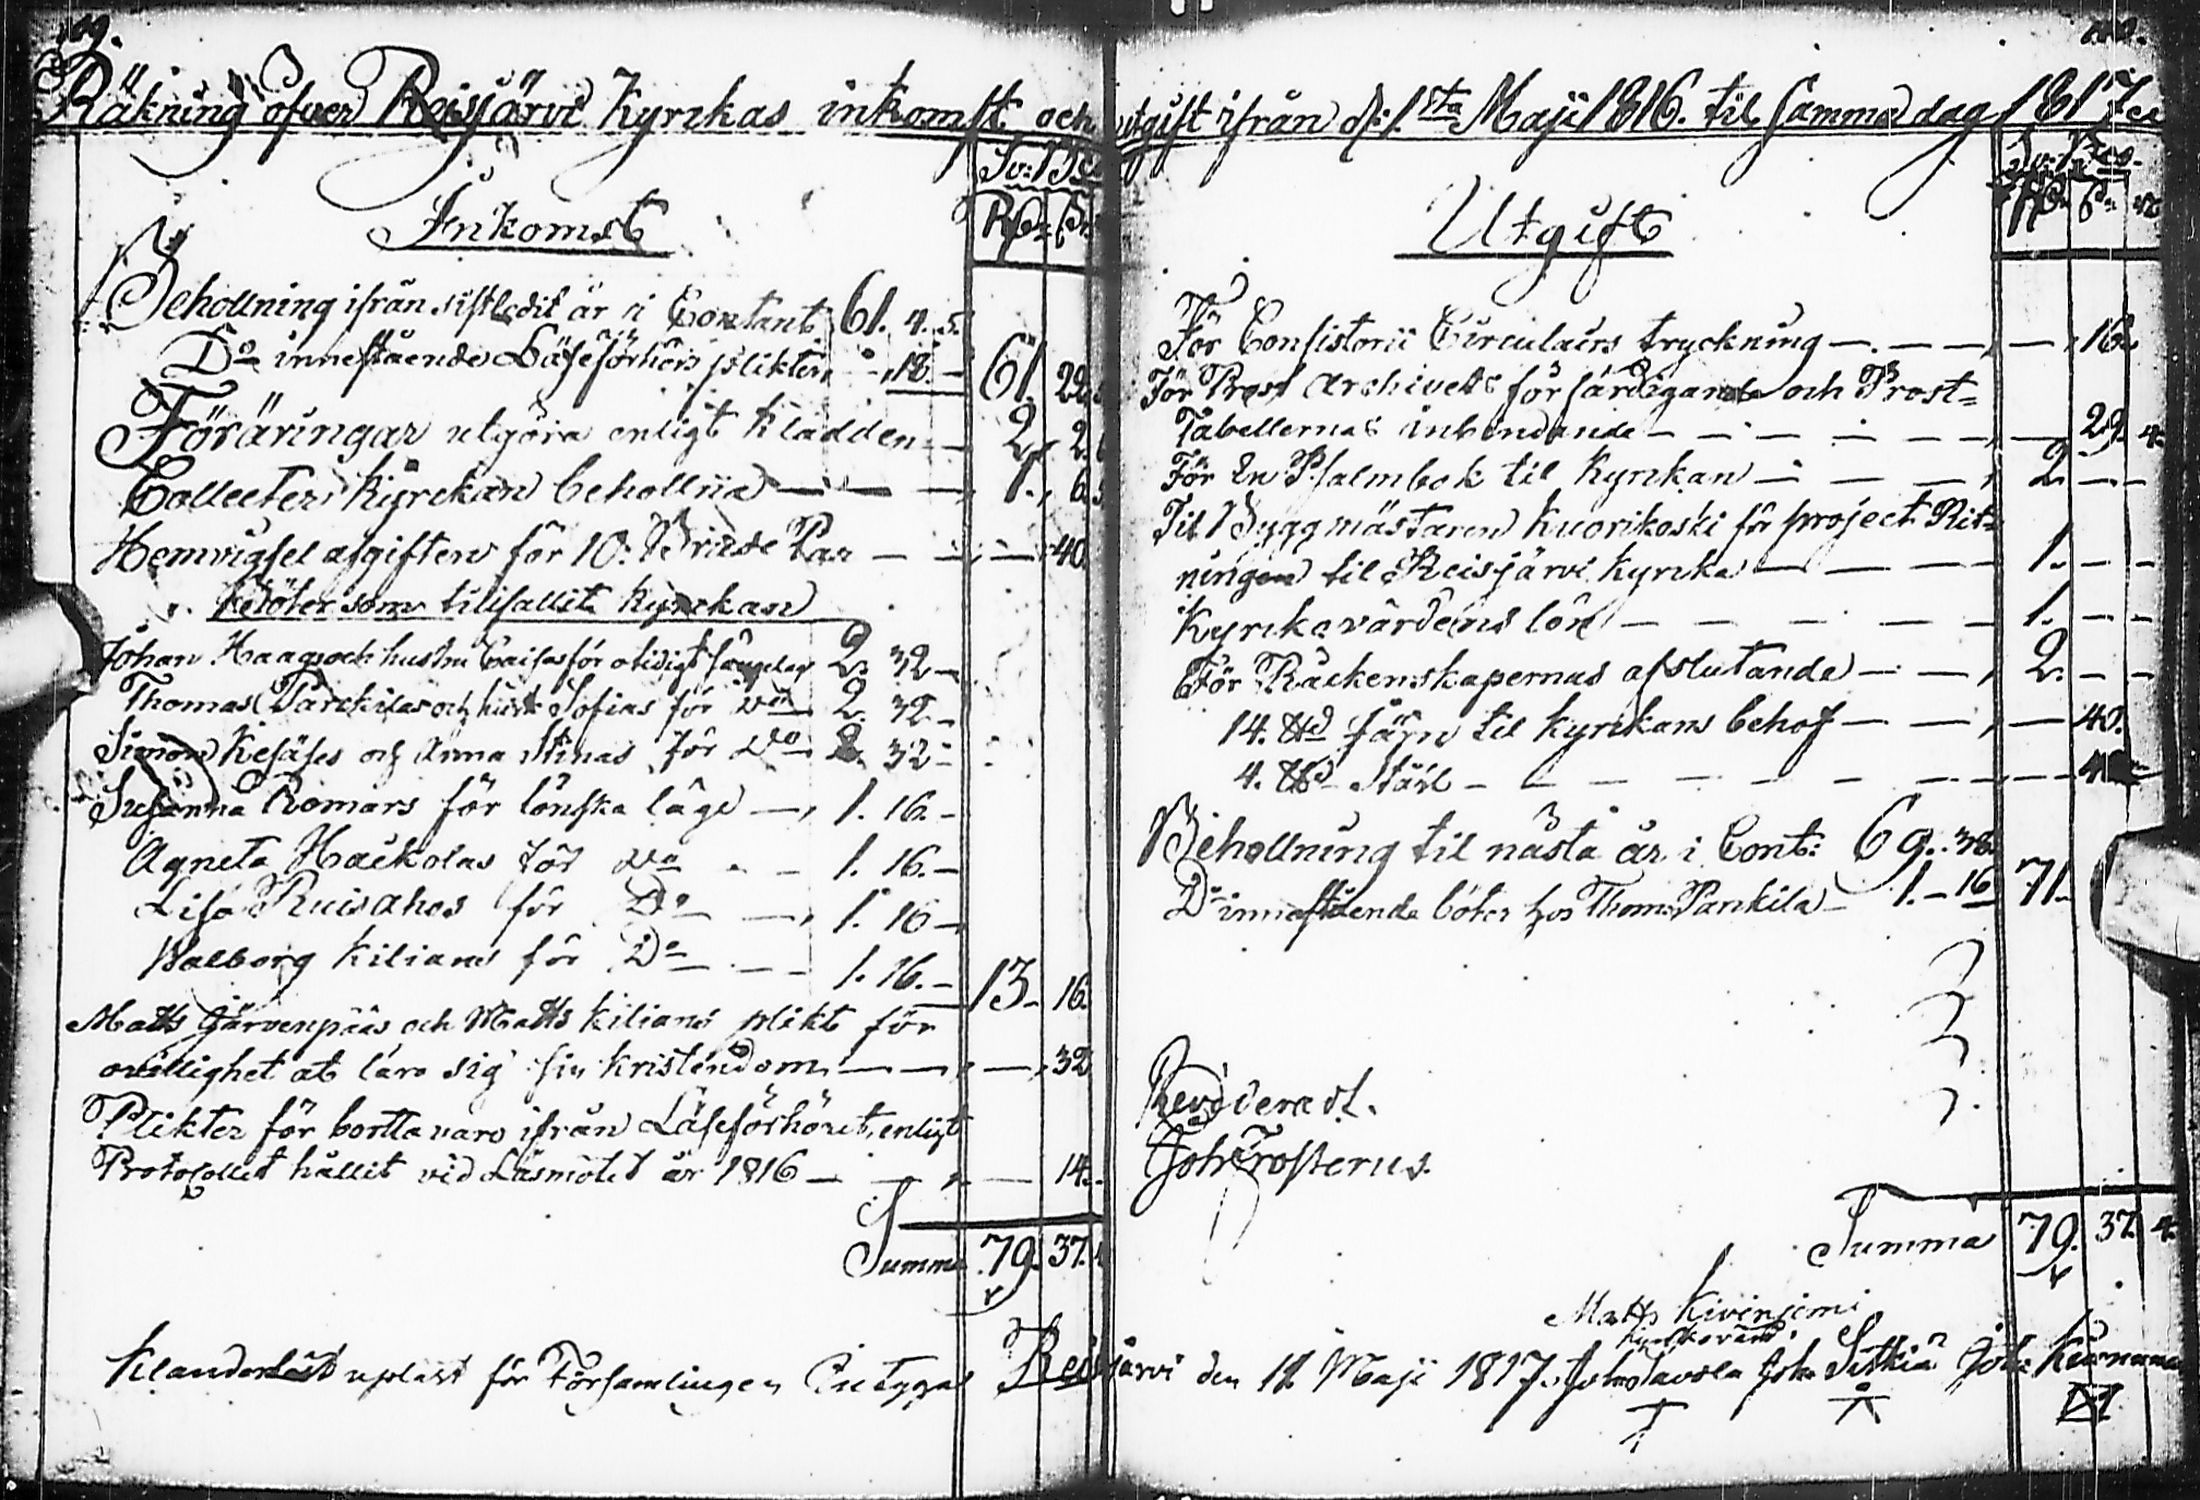 Räkning öfver Reisjärvi Kyrckas inkomst och utgift ifrån d. 1sta Maji 1816. til samma dag 1817
Sv: B:co
Inkomst
Behollning ifrån sistledit år i Contant 61. 4. 5.
Do inneståendes Läseförhörs plikter 18. 61. 22.
Föräringar utgöra enligt Kladden 2. 2.
Collecter Kyrckan behollna 1. 6.
Hemvigsel afgiften för 10: Brude Par 40.
Böter som tillfallit Kyrckan
Johan Haagos och hustru Caisas för otidigt sänglag 2. 32
Thomas och hustr Sofias för Do 2. 32
Simon Kesäses och Anna Stinas för Do 2. 32
Susanna Romars för lönska läge 1. 16.
Agneta Hackolas för Do 1. 16.
Lisa Ruisahos för Do 1. 16
Walborg Kilians för Do 1. 16. 13 16.
Matts Järvenpääs och Matts Kilians plikt för
ovillighet at lära sig sin Kristendom 32
Plikter för borttavaro ifrån Läseförhöret, enligt
Protocollet hållit vid Läsmötet år 1816 14.
Summa 79. 37.
Sv: B:co
Utgift
För Consistorii Circulairs tryckning 16.
För Prost Archivets för färdigande och Prost=
Tabellernas inbindande 29. 4.
För En Psalmbok til Kyrckan 2
Til Byggmästaren Kuorikoski få project Rit=
ningen til Reisjärvi Kyrcka 1.
Kyrckovärdens lön 1.
För Räckenskapernas afslutande 2.
14. ℔ Järn til Kyrckans behof 40.
4. ℔ Stål
Behollning til nästa år i Cont: 69. 38.
Do innestående böter hos Thom: Pankila 1. 16 71
Revideradt.
Joh: Frosterus.
Summa 79. 37. 4.
Matts Kiviniemi
Kyrckovärd.
Klanderlöst upläst för Församlingen Betygas Reisjärvi den 11. Maji 1817. Joh: Sitkiä Joh: